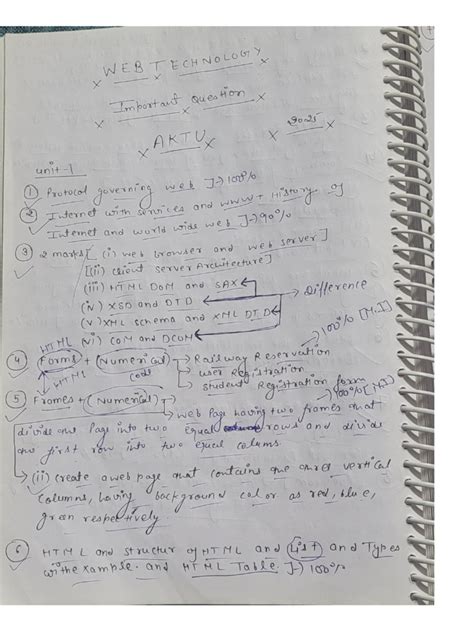 WEB TECHNOLOGY
Important Question
AKTU 2025
unit-1
① Protocol governing web ]→100%
② Internet with services and WWW + History of
Internet and world wide web ]→90%
③ 2 marks [ (i) web browser and web server]
[(ii) client server Architecture]
(iii) HTML DOM and SAX
(iv) XSD and DTD → Difference
(v) XML schema and XML DTD
(vi) COM and DCOM
HTML
④ Forms + (Numerical) → Railway Reservation 100% [M.I]
HTML code → user Registration
→ Student Registration form
⑤ Fromes + (Numerical) → 100% [M.I]
→ web Page having two fromes that
divide one Page into two equal rows and divide
one first row into two equal colums.
→ (ii) create a web page that contains one vertical
columns, having background color as red, blue,
green respectively
⑥ HTML and structur of HTML and List and Types
with example. and HTML Table. ]→ 100%